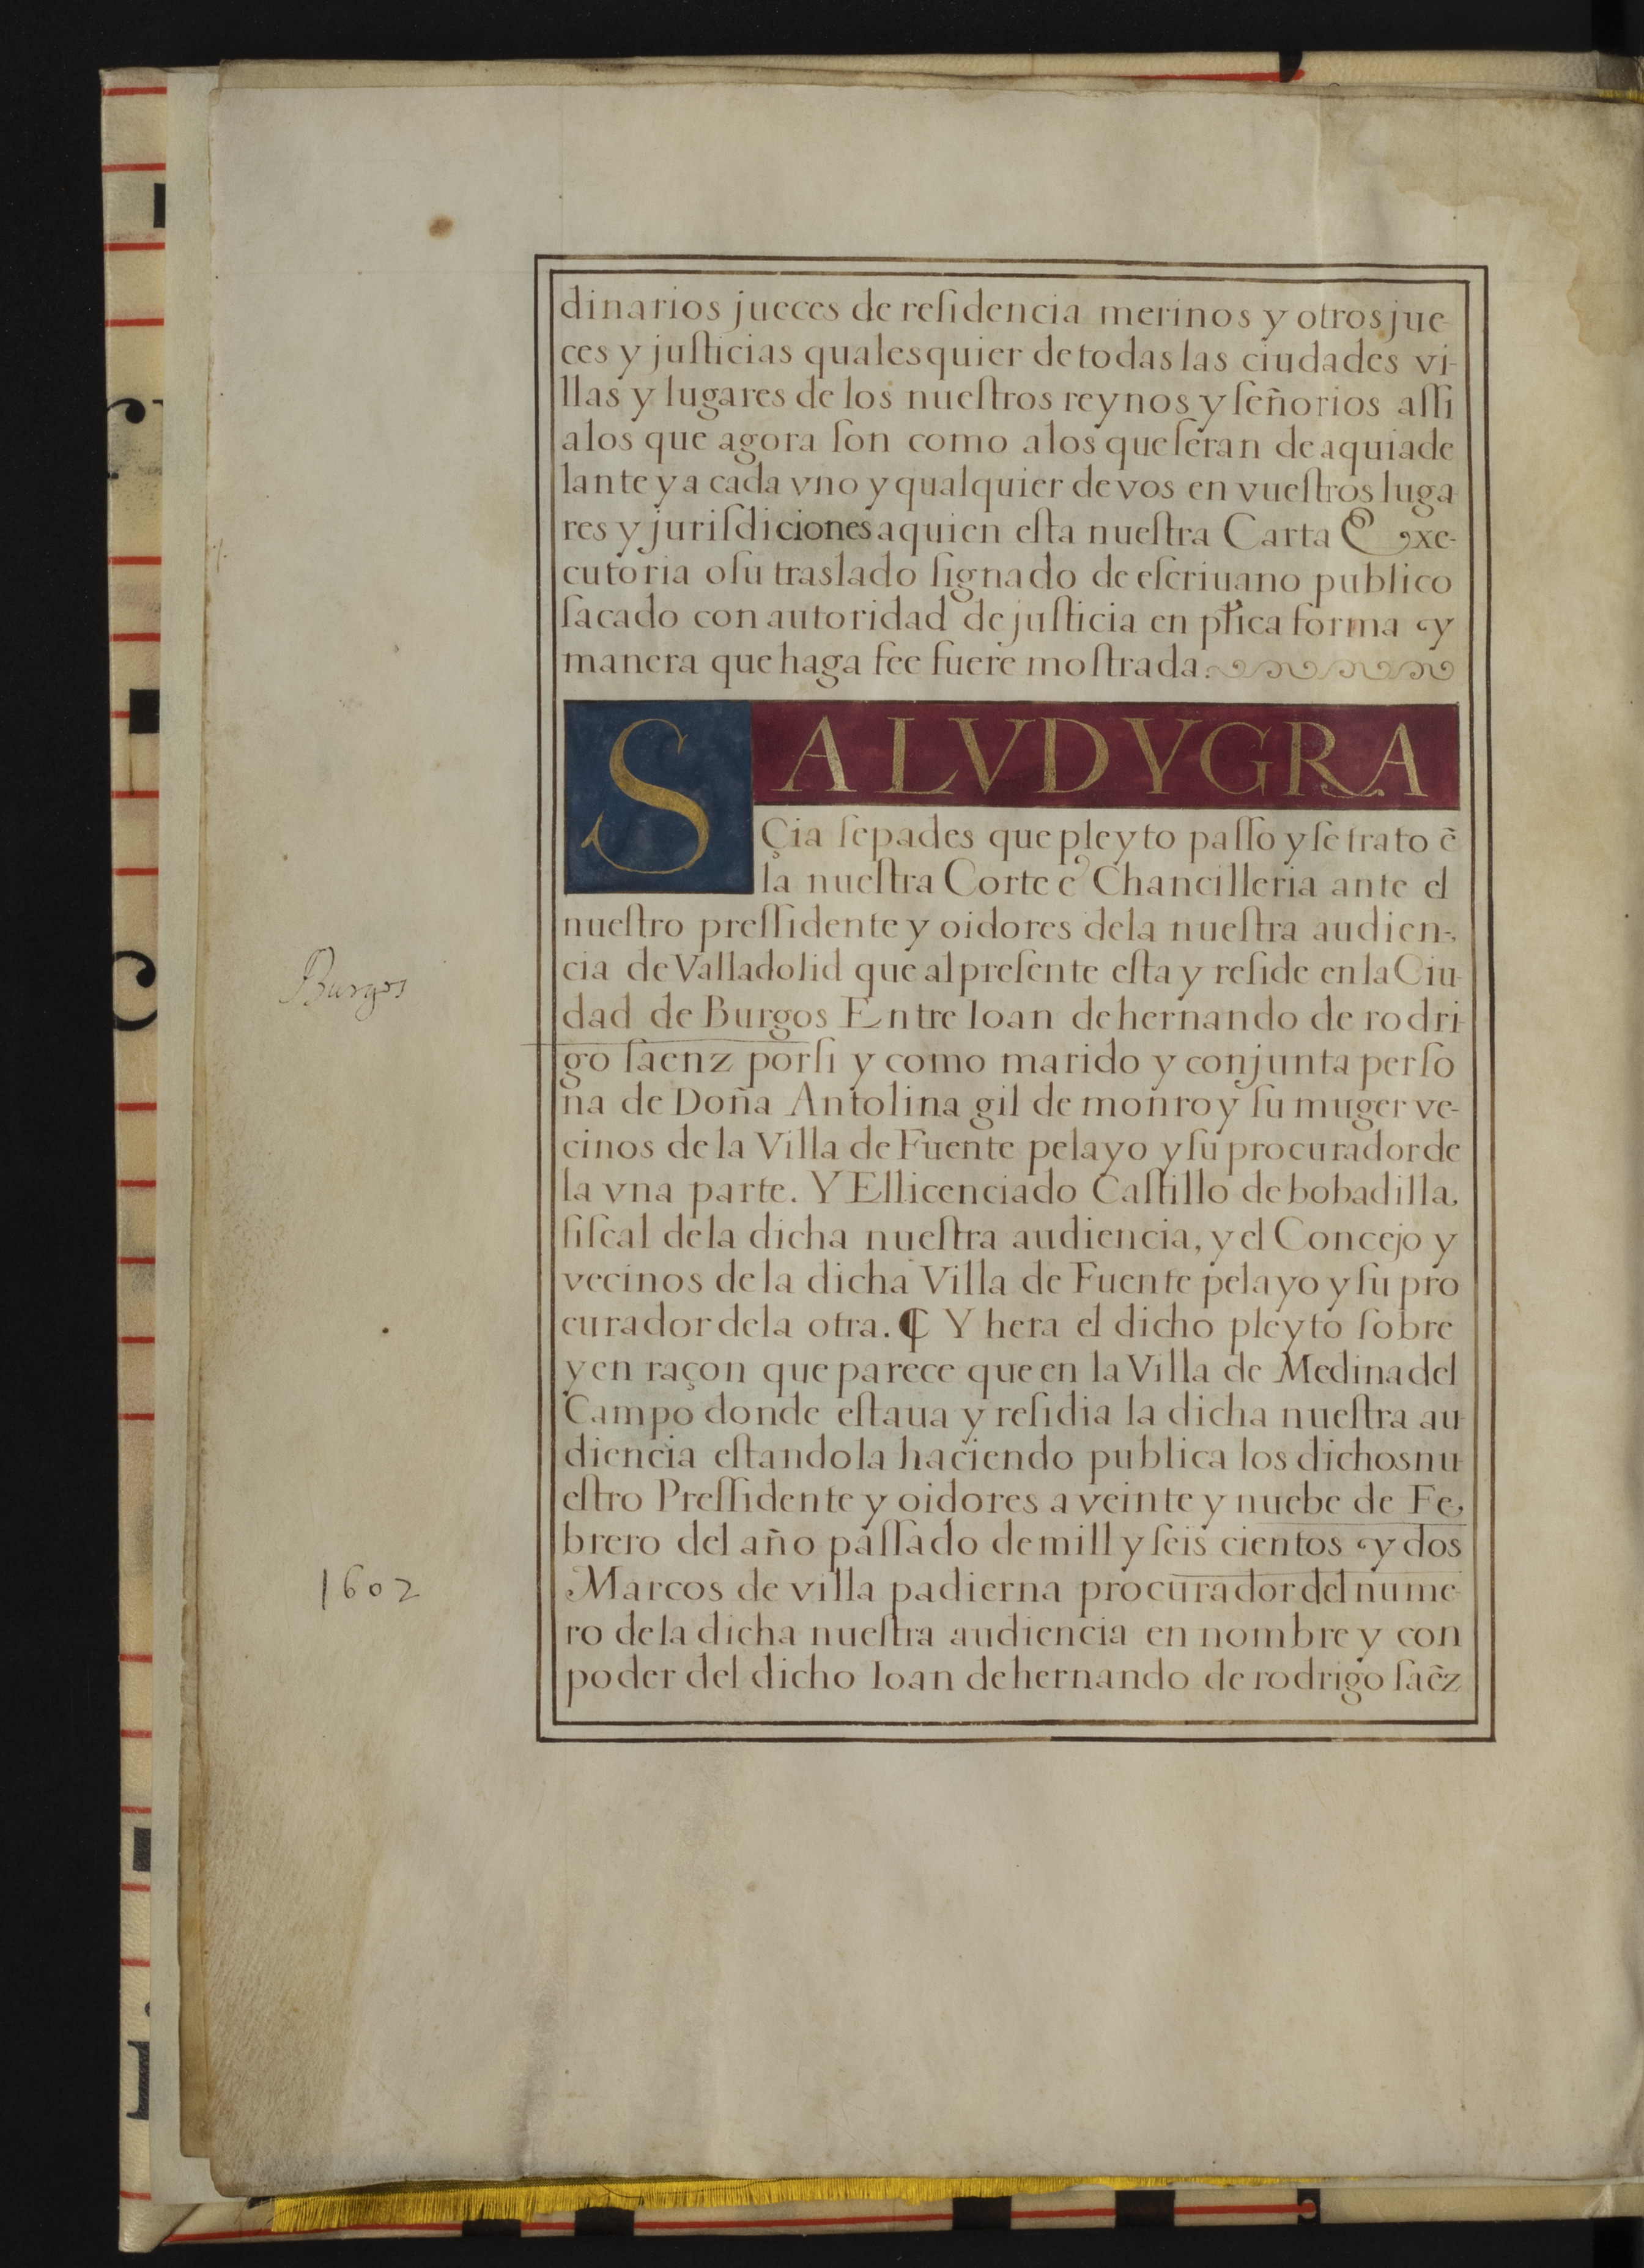 dinarios jueces de reſidencia merinos y otros jue
ces y juſticias qualesquier de todas las ciudades vi-
llas y lugares de los nueſtros reynos y ſeñorios aſſi
a los que agora ſon como a los que ſeran de aqui ade
lante y a cada vno y qualquier de vos en vueſtros luga
res y juriſdiciones a quien eſta nueſtra Carta Exe-
cutoria o ſu traslado ſignado de eſcriuano publico
ſacado con autoridad de juſticia en pt̃ica forma y
manera que haga fee fuere moſtrada.
SALVD Y GRA
Çia ſepades que pleyto paſſo y ſe trato ẽ
la nueſtra Corte e Chancilleria ante el
nueſtro preſſidente y oidores de la nueſtra audien-
cia de Valladolid que al preſente eſta y reſide en la Ciu-
Burgos
dad de Burgos Entre Ioan de hernando de rodri
go ſaenz por ſi y como marido y conjunta perſo
na de Doña Antolina gil de monroy ſu muger ve-
cinos de la Villa de Fuente pelayo y ſu procurador de
la vna parte. Y El licenciado Caſtillo de bobadilla,
fiſcal de la dicha nueſtra audiencia, y el Concejo y
vecinos de la dicha Villa de Fuente pelayo y ſu pro
curador de la otra. ¶ Y hera el dicho pleyto ſobre
y en raçon que parece que en la Villa de Medina del
Campo donde eſtaua y reſidia la dicha nueſtra au
diencia eſtandola haciendo publica los dichos nu
eſtro Preſſidente y oidores a veinte y nuebe de Fe,
brero del año paſſado de mill y ſeis cientos y dos
1602
Marcos de villa padierna procurador del nume
ro de la dicha nueſtra audiencia en nombre y con
poder del dicho Ioan de hernando de rodrigo ſaẽz